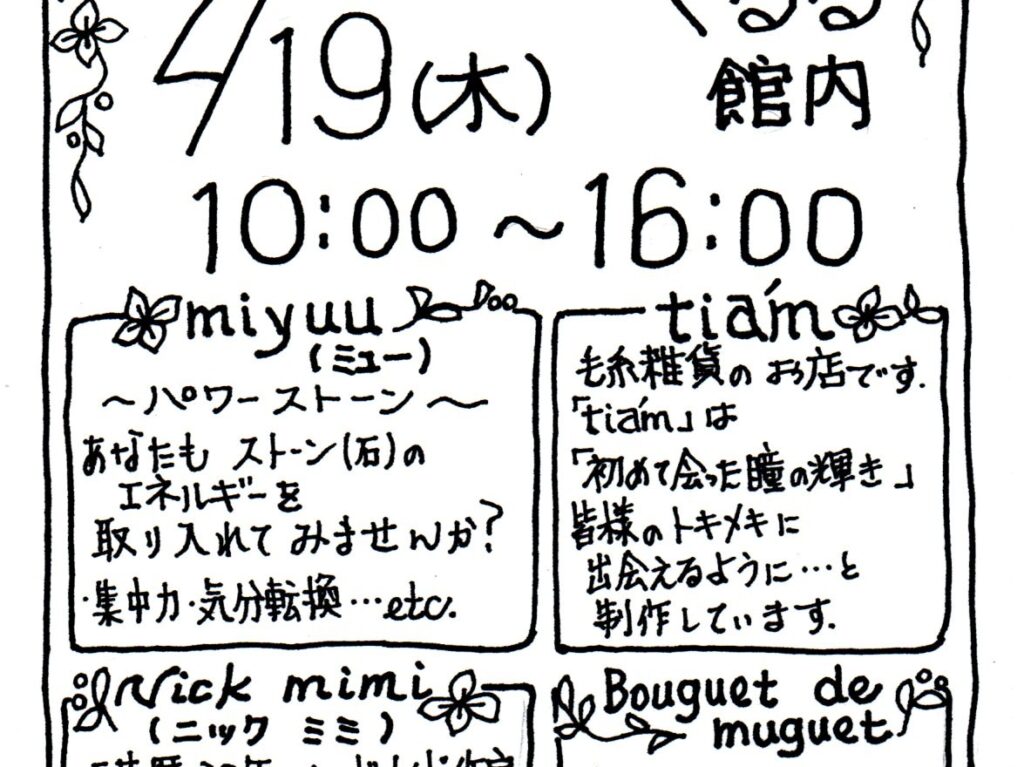 4/19(木)
館内
10:00～16:00
miyuu
(ミュー)
～パワーストーン～
あなたも ストーン(石)の
エネルギーを
取り入れて みませんか?
・集中力・気分転換…etc.
tiaḿ
毛糸雑貨の お店です.
「tiaḿ」は
「初めて会った瞳の輝き」
皆様のトキメキに
出会えるように…と
制作しています.
Nick mimi
(ニック ミミ)
Bouguet de
muguet